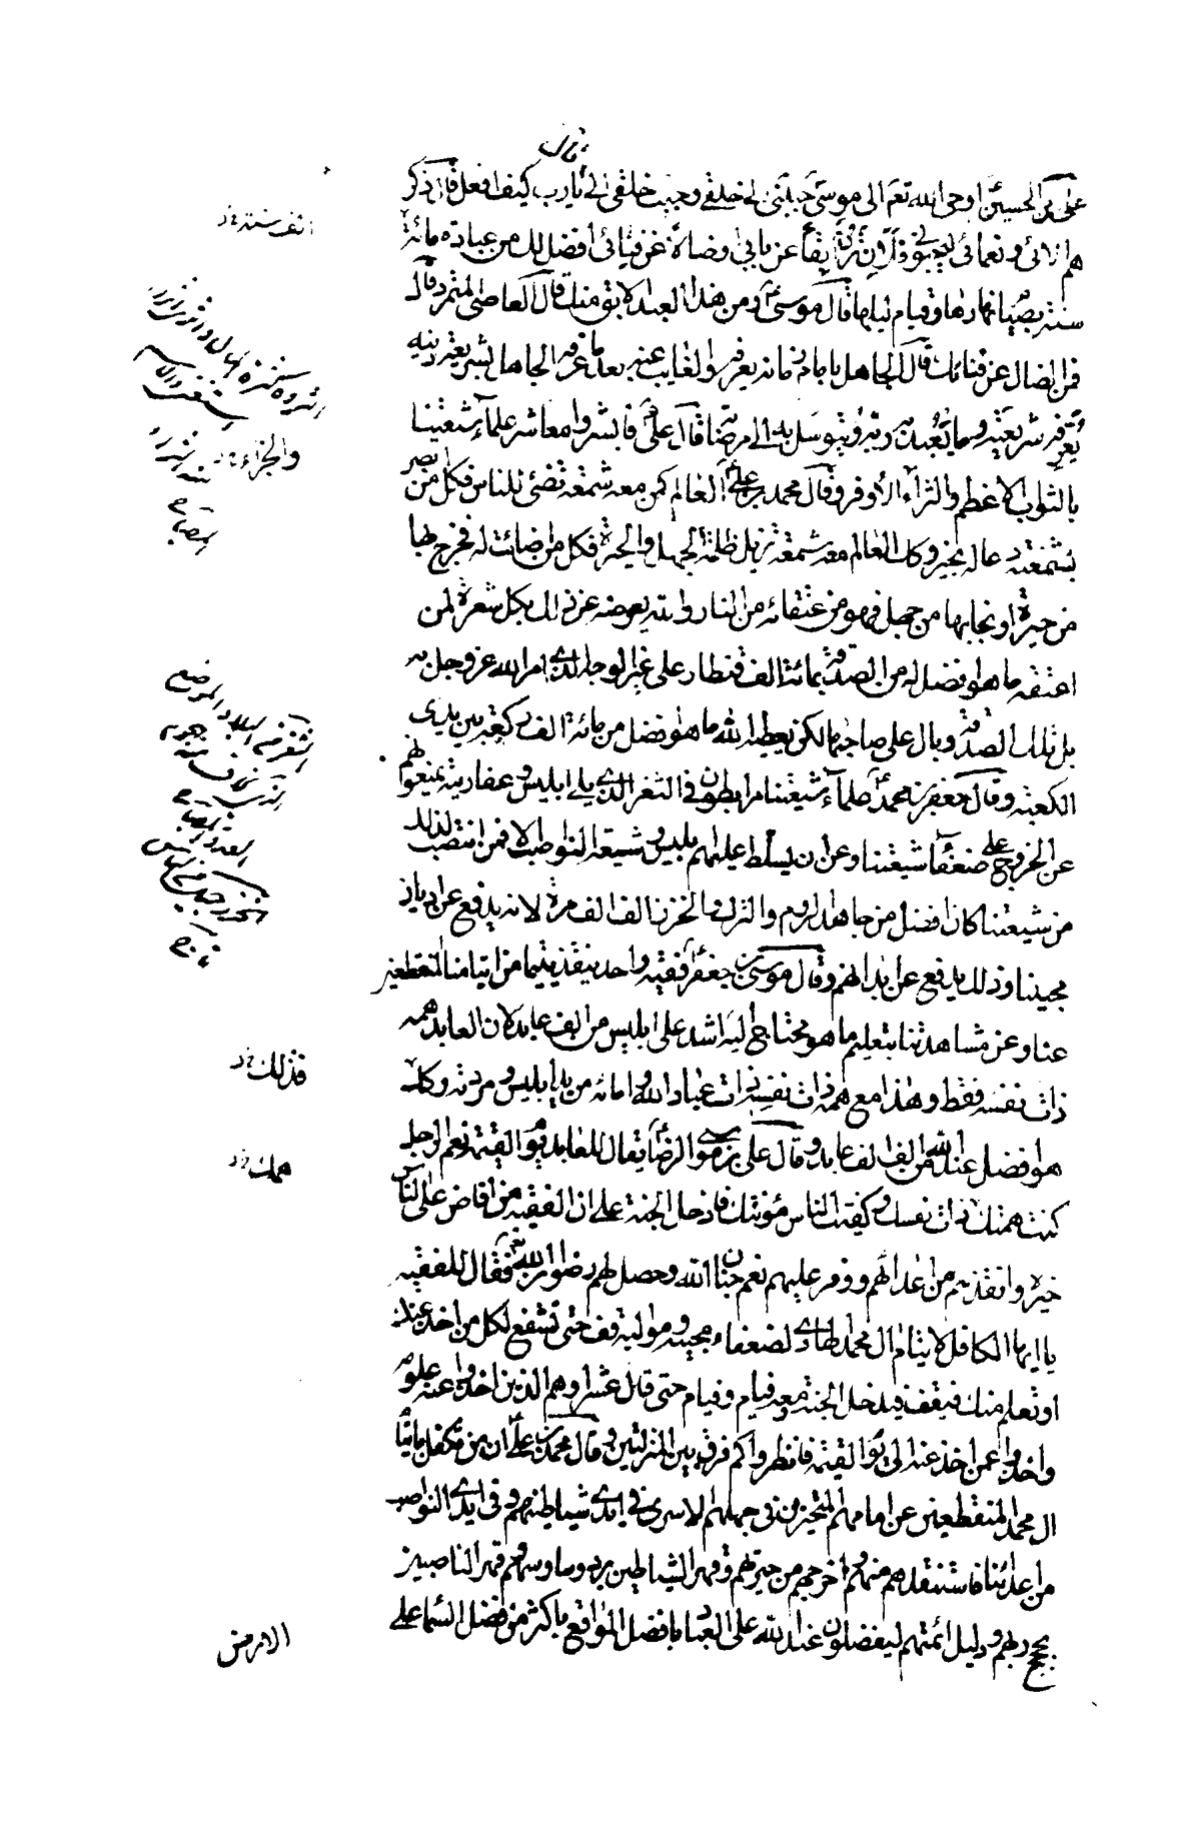 قال
على بن الحسين اوحى الله تعم الى موسى حببنى الى خلقى وحبب خلقى الى يا رب كيف افعل قال ذكر
هم آلائى ونعمائى ليحبونى فلان ترد آبقا عن بابى او ضالا عن فنائى افضل لك من عبادة مائة
سنة بصيام نهارها وقيام ليلها قال موسى ومن هذا العبد الابق منك قال العاصى المتمرد قال
فمن الضال عن فنائك قال الجاهل بامام زمانه يعرفه والغايب عنه بعد ما عرفه الجاهل بشريعة دينه
يعرفه شريعته وما يعبد به ربه ويتوسل به الى مرضاته قال على فابشروا معاشر علماء شيعتنا
بالثواب الاعظم والثراء الاوفر وقال محمد بن على العالم كمن معه شمعة تضئ للناس فكل من بصر
بشمعته دعا له بخير وكك العالم معه شمعة تزيل ظلمة الجهل والحيرة فكل من اضائت له فخرج بها
من حيرة او نجا بها من جهل فهو من عتقائه من النار والله يعوضه عن ذلك بكل شعرة لمن
اعتقه ما هو افضل له من الصدقة بمائة الف قنطار على غير الوجه الذى امر الله عز وجل به
بل تلك الصدقة وبال على صاحبها لكن يعطيه الله ما هو افضل من مائة الف ركعة بين يدى
الكعبة وقال جعفر بن محمد علماء شيعتنا مرابطون فى الثغر الذى يلى ابليس وعفاريته يمنعونهم
عن الخروج على ضعفاء شيعتنا وعن ان يسلط عليهم ابليس وشيعته النواصب الا فمن انتصب لذلك
من شيعتنا كان افضل ممن جاهد الروم والترك والخزر الف الف مرة لانه يدفع عن اديان
محبينا وذلك يدفع عن ابدانهم وقال موسى بن جعفر فقيه واحد ينقذ يتيما من ايتامنا المنقطعين
عنا وعن مشاهدتنا بتعليم ما هو محتاج اليه اشد على ابليس من الف عابد لان العابد همه
ذات نفسه فقط وهذا مع همه ذات نفسه ذات عباد الله وامائه من يد ابليس ومردته وكك
هو افضل عند الله من الف الف عابد وقال على بن موسى الرضا يقال للعابد يوم القيمة نعم الرجل
كنت همتك ذات نفسك وكفيت الناس مؤنتك فادخل الجنة على ان الفقيه من افاض على الناس
خيره وانقذهم من اعدائهم ووفر عليهم نعم جنان الله وحصل لهم رضوان الله تعم فقال للفقيه
يا ايها الكافل لايتام ال محمد الهادى لضعفاء محبيه ومواليه قف حتى تشفع لكل من اخذ عنك
او تعلم منك فيقف فيدخل الجنة ومعه فيام وفيام حتى قال عشرا وهم الذين اخذوا عنه علومه
واخذوا عمن اخذ عنه الى يوم القيمة فانظروا كم فرق بين المنزلتين وقال محمد بن على ان من تكفل بايتام
ال محمد المنقطعين عن امامهم المتحيرين فى جهلهم الاسرى فى ايدى شياطينهم وفى ايدى النواصب
من اعدائنا فاستنقذهم منهم واخرجهم من حيرتهم وقهر الشياطين برد وساوسهم وقهر الناصبين
بحجج ربهم ودليل ائمتهم ليفضلون عند الله على العباد بافضل المواقع باكثر من فضل السماء على
الف سنة
والجزاء
المصباح
فذلك
همك
الارض